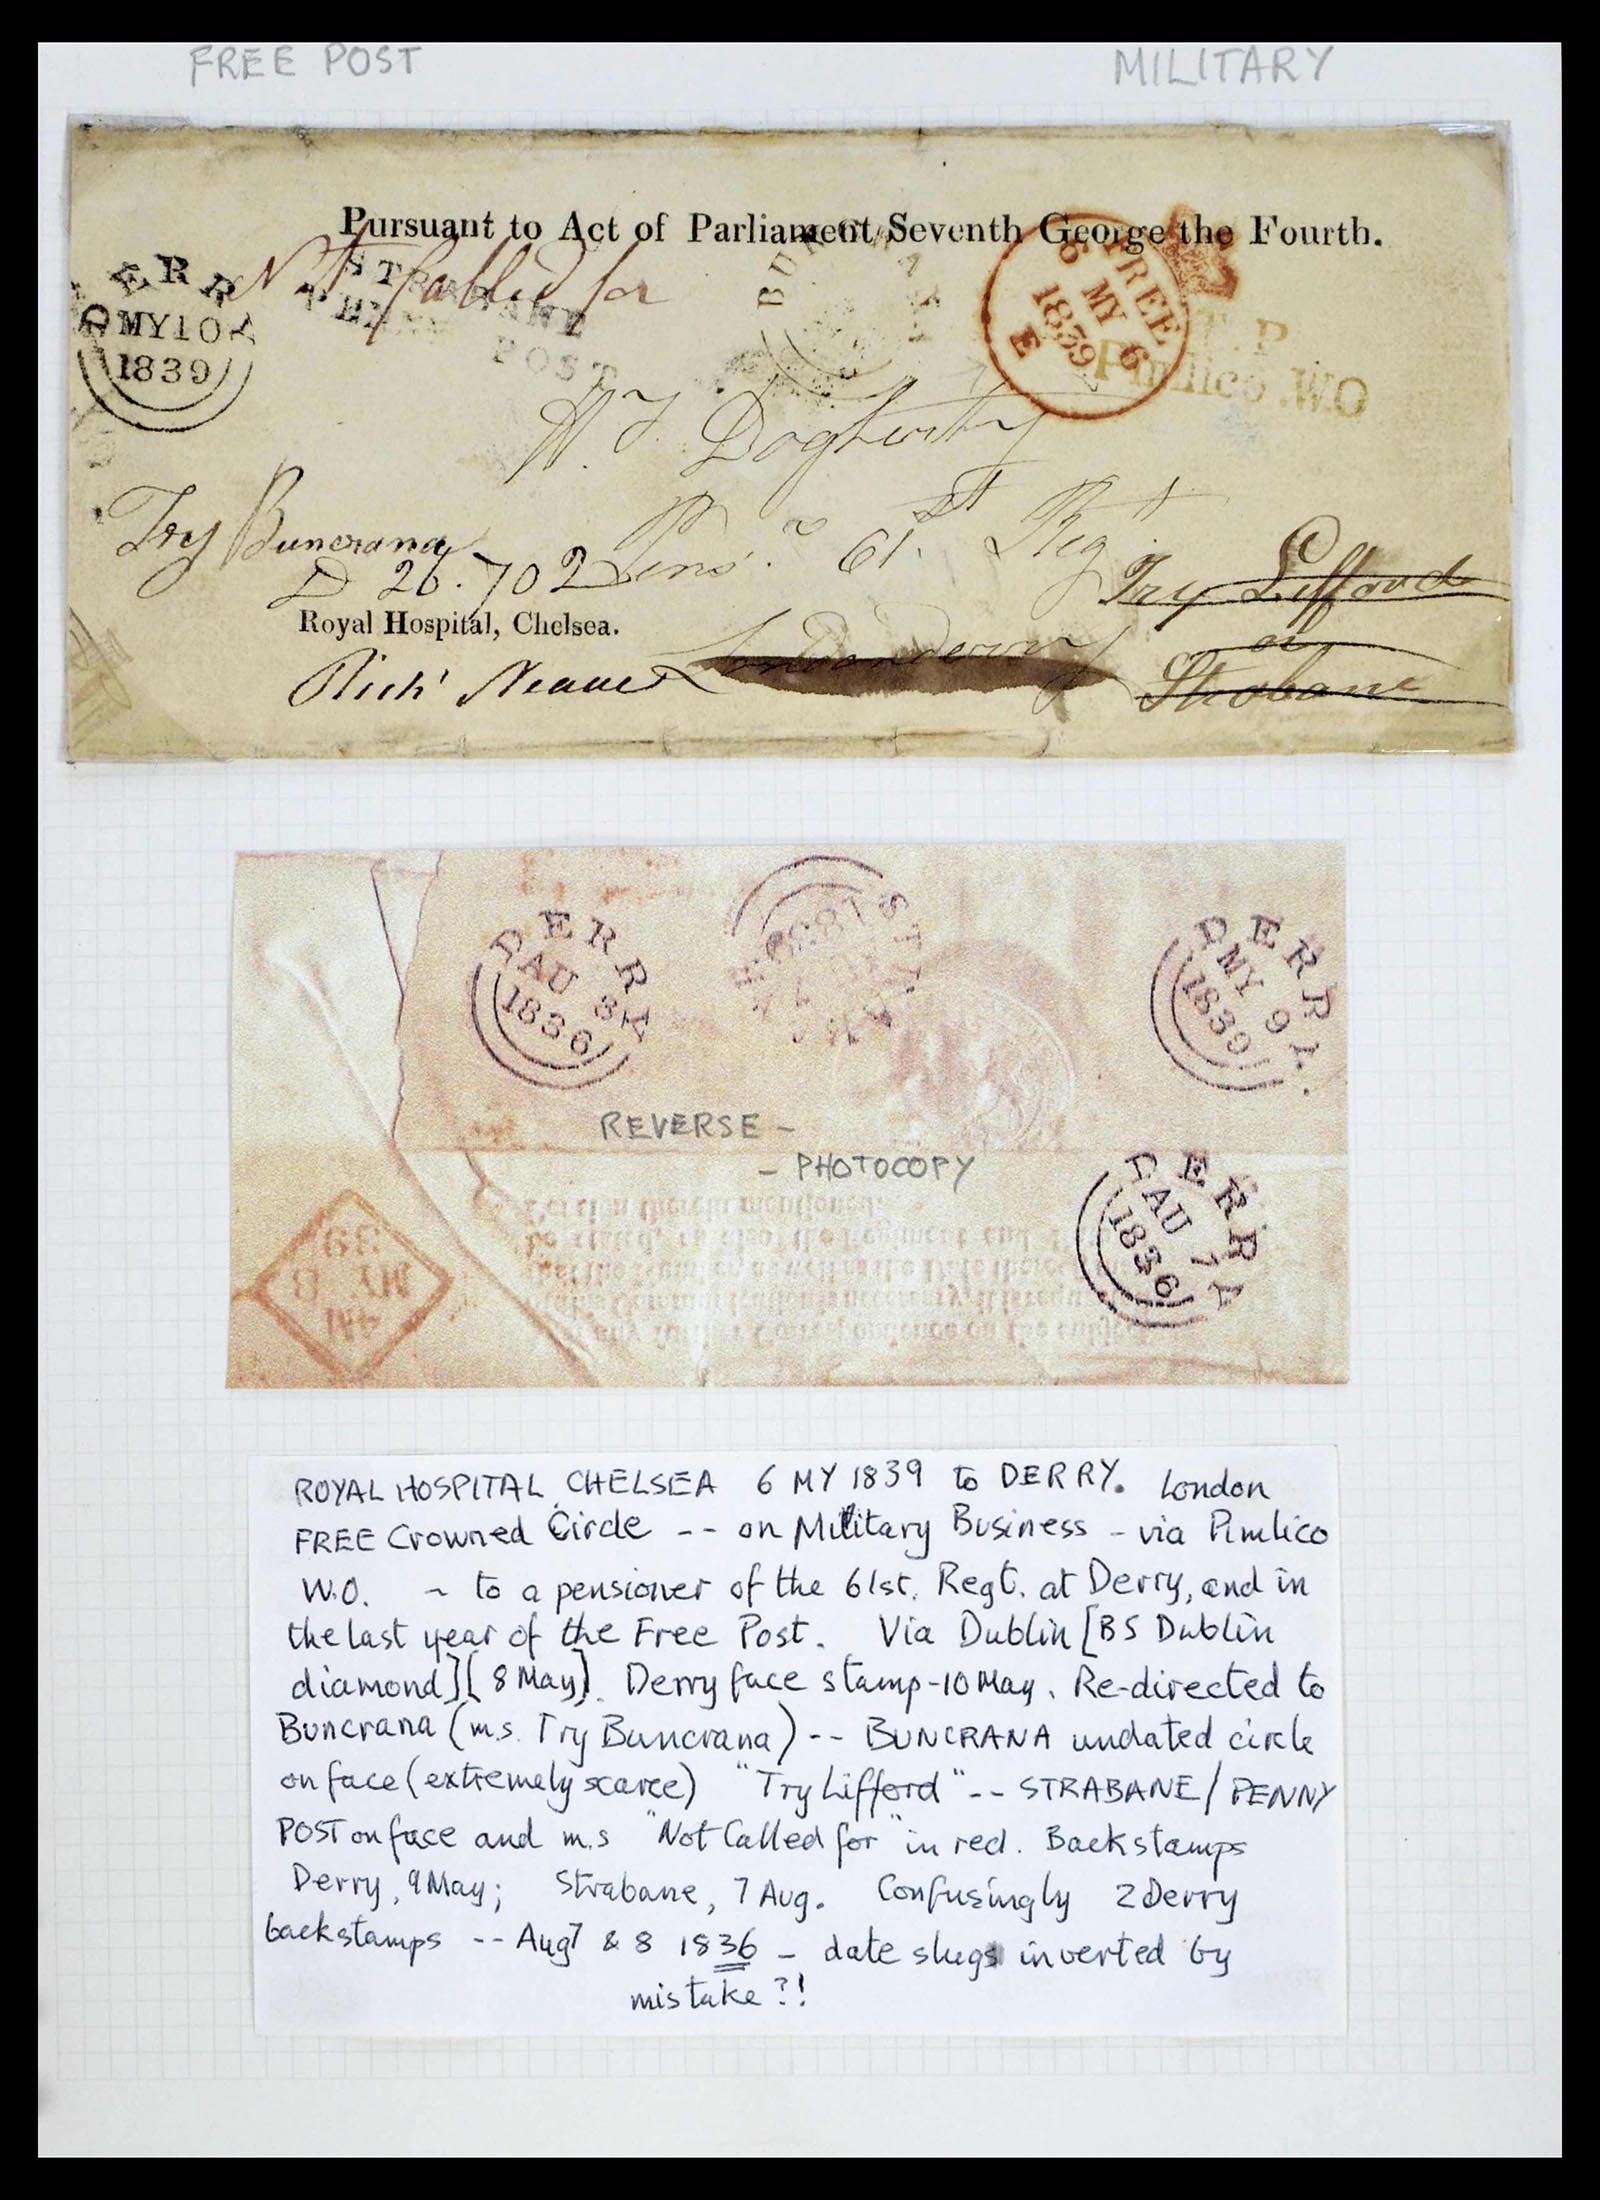 FREE POST
MILITARY
Pursuant to Act of Parliament Seventh George the Fourth.
Not Called for
DERRY
MY 10 A
1839
STRABANE
PENNY POST
BUN
FREE
6 MY 6
1839
E
T.P
Pimlico .W.O
Wm Dogherty
Try Buncrana
D 26.702
Pens.r 61.st Regt
Try Lifford
or
Strabane
Royal Hospital, Chelsea.
Londonderry
Richd Neave
DERRY
AU 8
1836
DERRY
MY 9
1839
REVERSE -
- PHOTOCOPY
DERRY
AU 7
1836
A
AM
MY 8
39
ROYAL HOSPITAL CHELSEA 6 MY 1839 to DERRY. London
FREE Crowned Circle -- on Military Business - via Pimlico
W.O. ~ to a pensioner of the 61st. Regt. at Derry, and in
the last year of the Free Post. Via Dublin [BS Dublin
diamond] [8 May]. Derry face stamp - 10 May. Re-directed to
Buncrana (m.s. Try Buncrana) -- BUNCRANA undated circle
on face (extremely scarce) "Try Lifford" -- STRABANE / PENNY
POST on face and m.s "Not Called for" in red. Backstamps
Derry, 9 May; Strabane, 7 Aug. Confusingly 2 Derry
backstamps -- Aug 7 & 8 1836 - date slugs inverted by
mistake?!